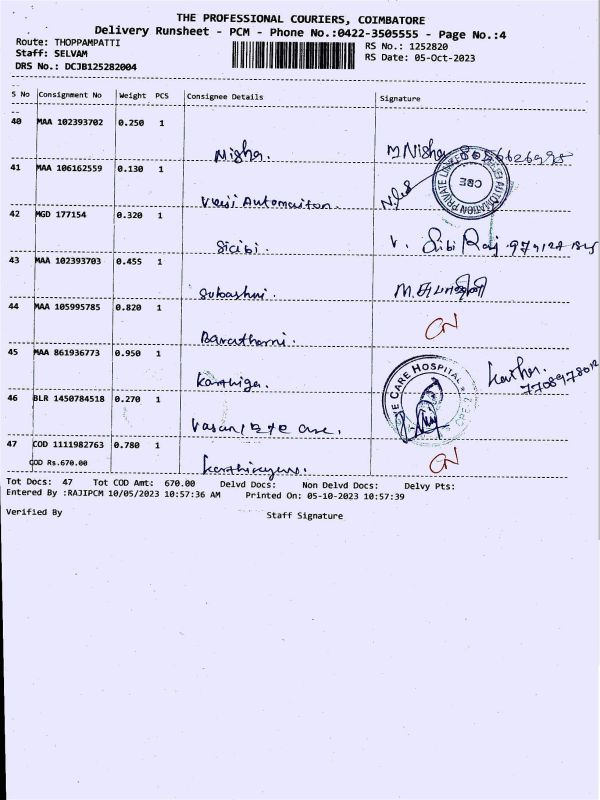 THE PROFESSIONAL COURIERS, COIMBATORE
Delivery Runsheet - PCM - Phone No.:0422-3505555 - Page No.:4
Route: THOPPAMPATTI
RS No.: 1252820
Staff: SELVAM
RS Date: 05-Oct-2023
DRS No.: DCJB125282004
S No Consignment No Weight PCS Consignee Details Signature
40 MAA 102393702 0.250 1
Nisha. M Nisha
41 MAA 106162559 0.130 1
Automation. AUTOMATION PRIVATE CBE
42 MGD 177154 0.320 1
Sicibi. V. Sibi Raj
43 MAA 102393703 0.455 1
Subashni. M. சுபாஷினி
44 MAA 105995785 0.820 1
CN
Barathami.
45 MAA 861936773 0.950 1
Karthiga. EYE CARE HOSPITAL CBE-2
7708978012
46 BLR 1450784518 0.270 1
Vasan Eye Care.
47 COD 1111982763 0.780 1
CN
COD Rs.670.00
Tot Docs: 47 Tot COD Amt: 670.00 Delvd Docs: Non Delvd Docs: Delvy Pts:
Entered By :RAJIPCM 10/05/2023 10:57:36 AM Printed On: 05-10-2023 10:57:39
Verified By Staff Signature